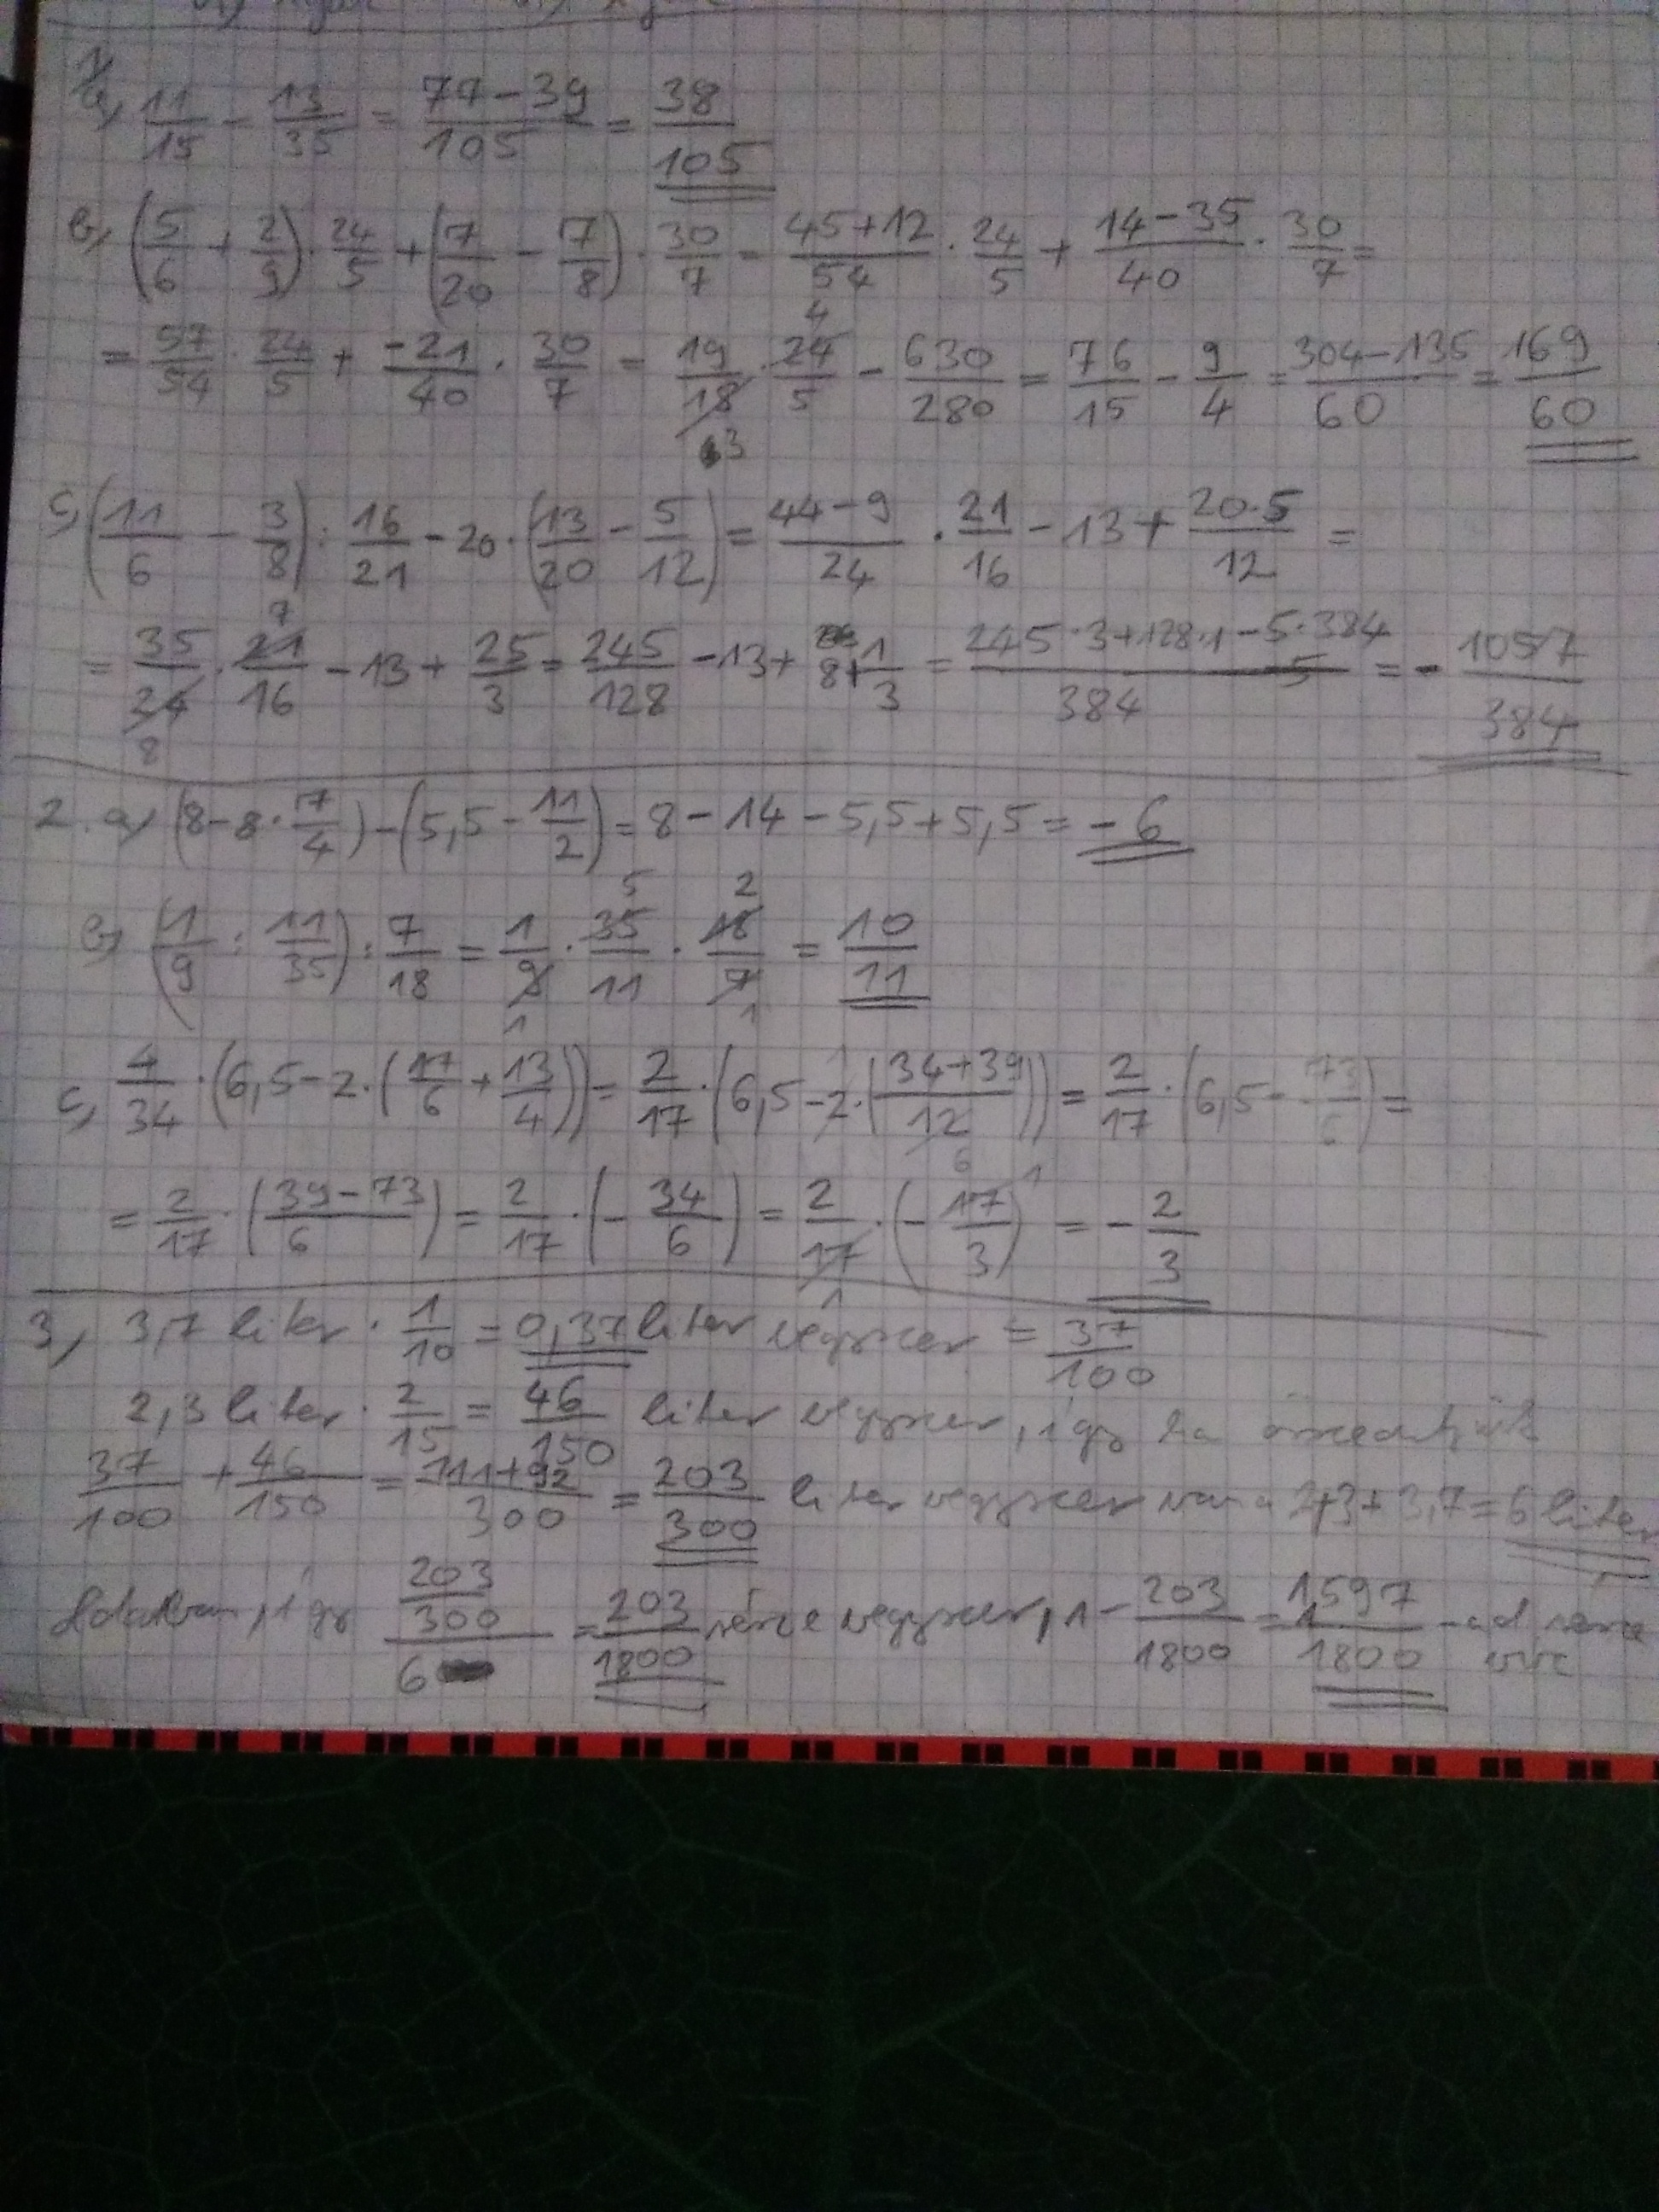 1,
a, 11/15 - 13/35 = (77-39)/105 = 38/105
b, (5/6 + 2/9) · 24/5 + (7/20 - 7/8) · 30/7 = (45+12)/54 · 24/5 + (14-35)/40 · 30/7 =
= 57/54 · 24/5 + -21/40 · 30/7 = 19/18 · 24/5 - 630/280 = 76/15 - 9/4 = (304-135)/60 = 169/60
c, (11/6 - 3/8) : 16/21 - 20 · (13/20 - 5/12) = (44-9)/24 · 21/16 - 13 + (20·5)/12 =
= 35/24 · 21/16 - 13 + 25/3 = 245/128 - 13 + 8+1/3 = (245·3+128·1-5·384)/384 = - 1057/384
2. a, (8-8·7/4) - (5,5 - 11/2) = 8 - 14 - 5,5 + 5,5 = -6
b, (1/9 : 11/35) : 7/18 = 1/9 · 35/11 · 18/7 = 10/11
c, 4/34 · (6,5-2·(17/6 + 13/4)) = 2/17 · (6,5-2·((34+39)/12)) = 2/17 · (6,5 - 73/6) =
= 2/17 · ((39-73)/6) = 2/17 · (- 34/6) = 2/17 · (- 17/3) = - 2/3
3, 3,7 liter · 1/10 = 0,37 liter vegyszer = 37/100
2,3 liter · 2/15 = 46/150 liter vegyszer, így ha összeadjuk
37/100 + 46/150 = (111+92)/300 = 203/300 liter vegyszer van a 2,3+3,7=6 liter
oldatban, így (203/300)/6 = 203/1800 része vegyszer, 1 - 203/1800 = 1597/1800 -ad része víz